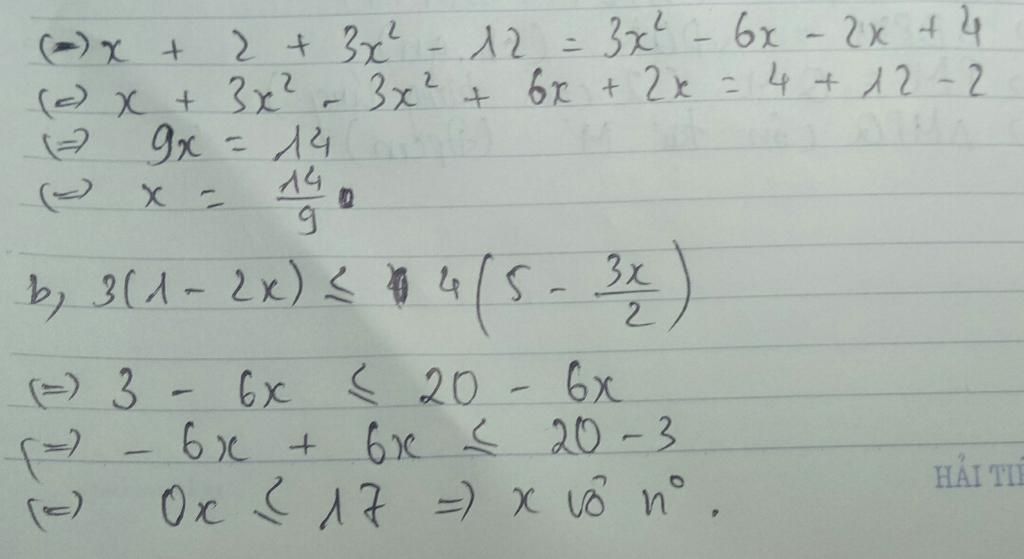 (=) x + 2 + 3x² - 12 = 3x² - 6x - 2x + 4
(=) x + 3x² - 3x² + 6x + 2x = 4 + 12 - 2
(=) 9x = 14
(=) x = 14/9
b, 3(1 - 2x) ≤ 4(5 - 3x/2)
(=) 3 - 6x ≤ 20 - 6x
(=) - 6x + 6x ≤ 20 - 3
HẢI TIẾ
(=) 0x ≤ 17 => x vô n⁰.